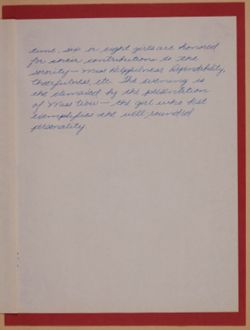 time, six or eight girls are honored
for their contributions to the
sorority — Miss Helpfulness, Dependability,
Cheerfulness, etc. The evening is
the climaxed by the presentation
of Miss Wow — the girl who best
exemplifies the well-rounded
personality.